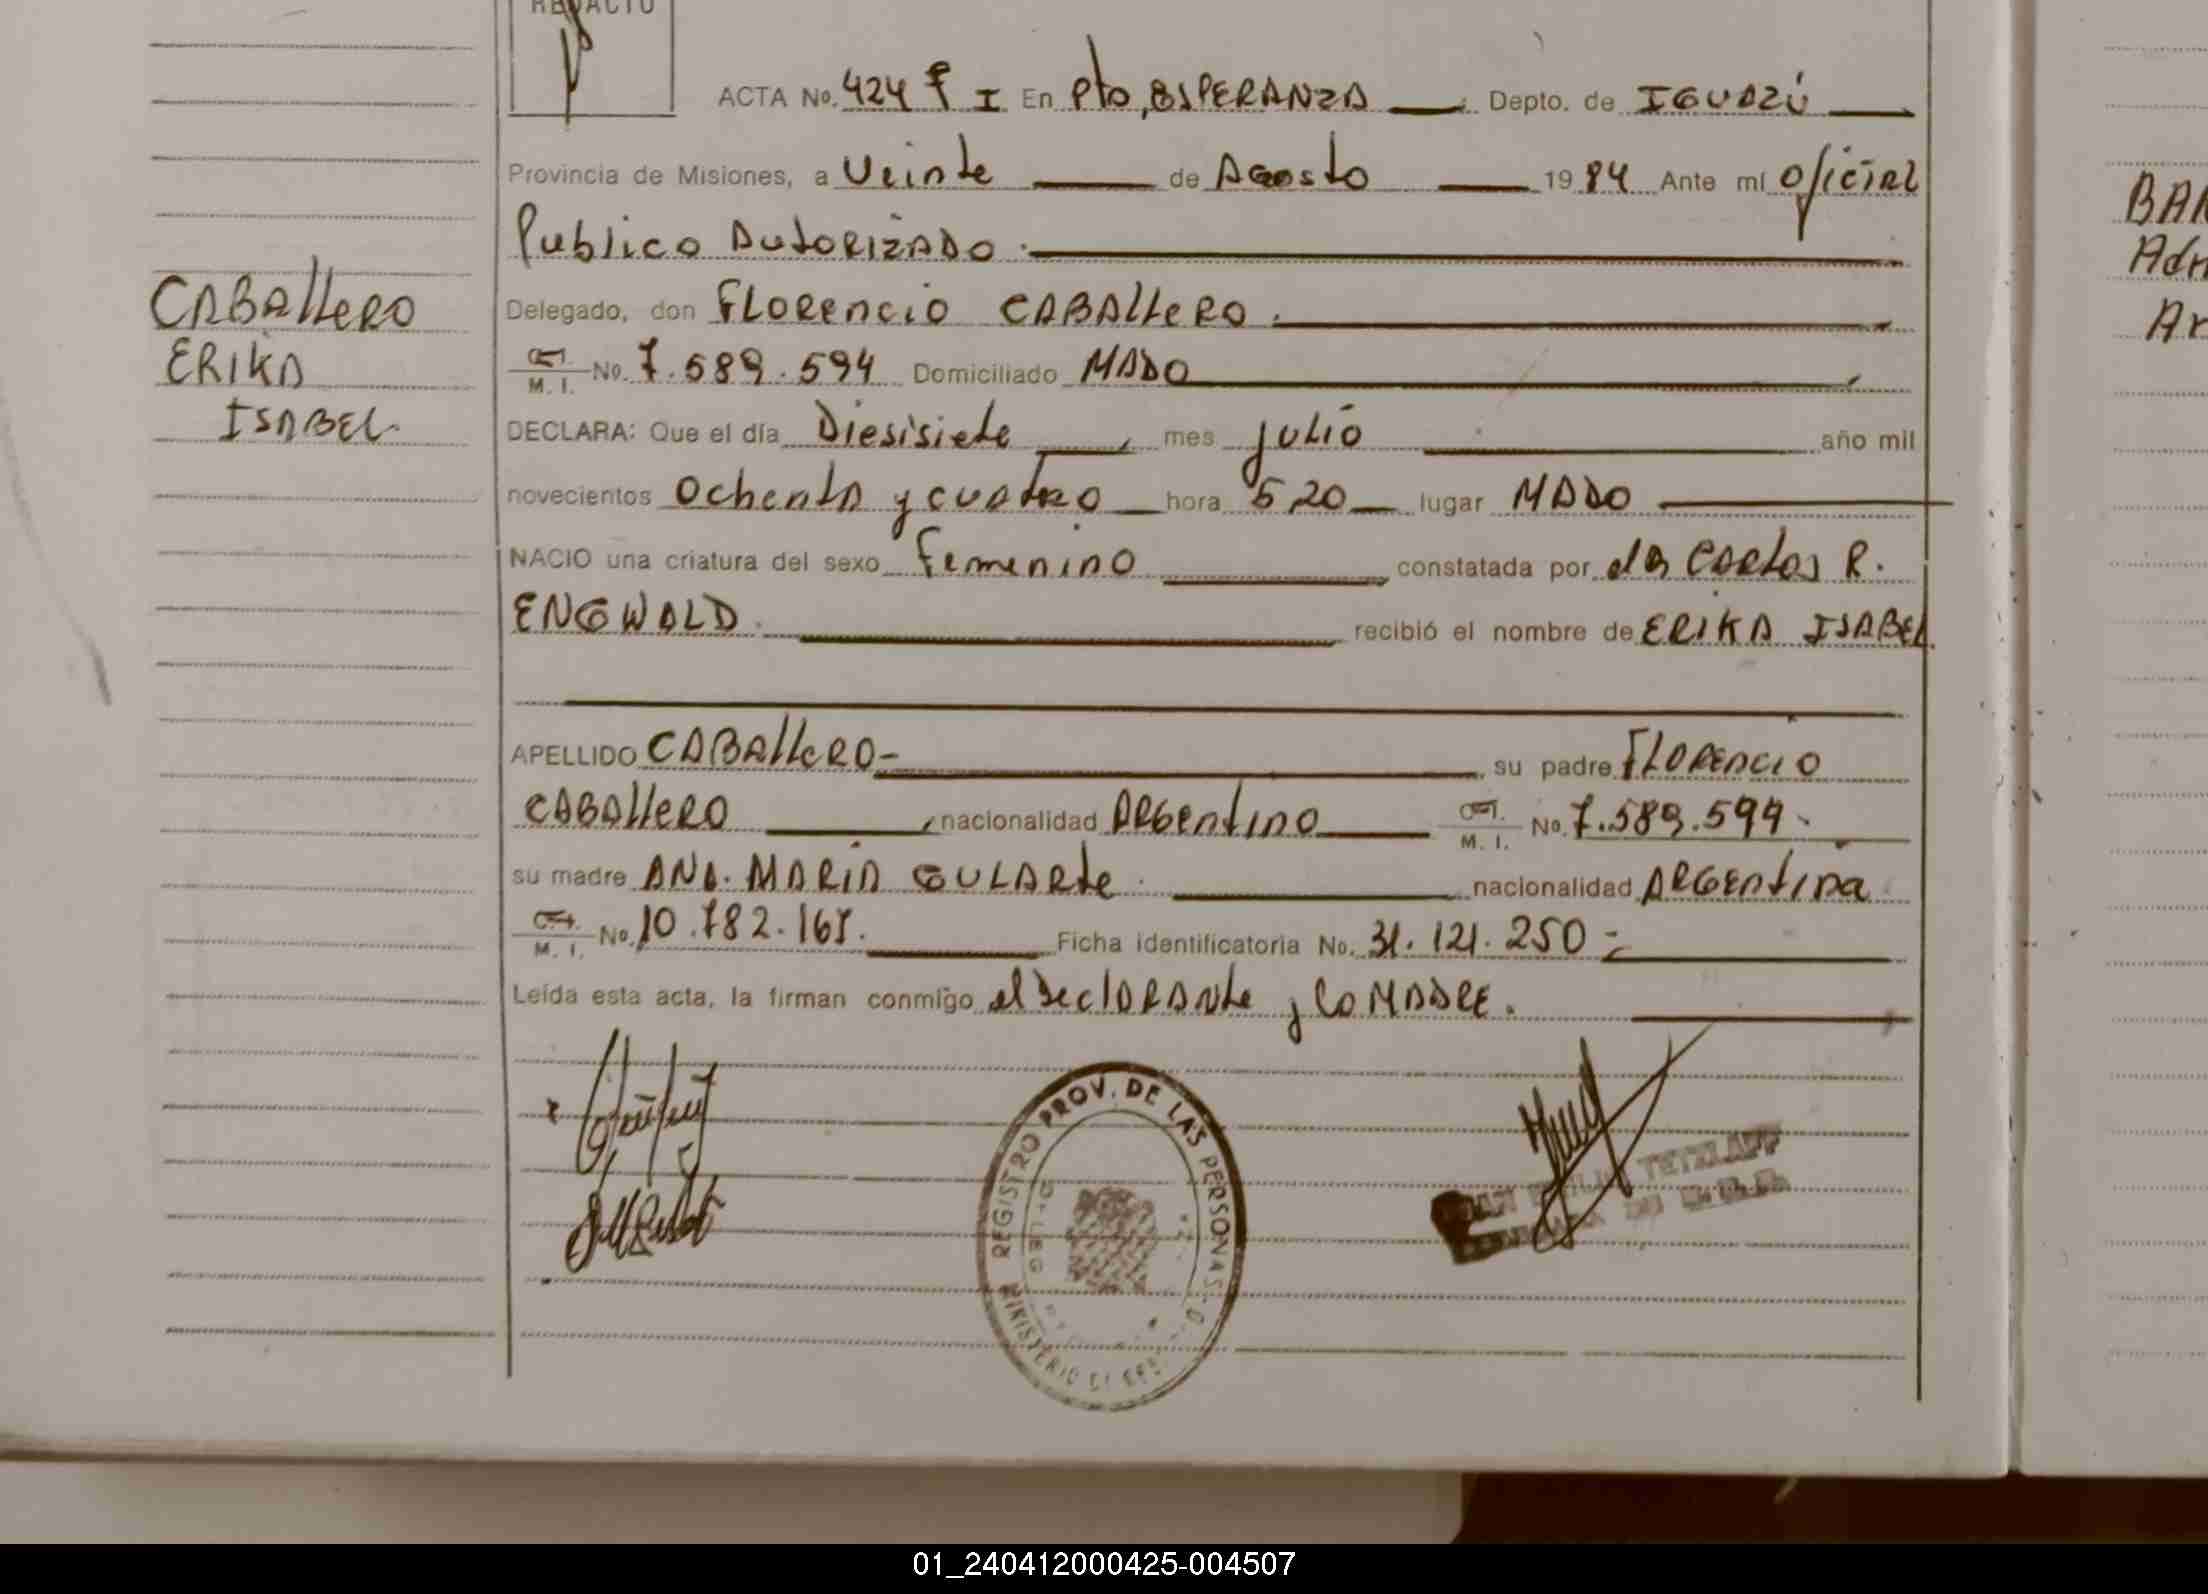 REDACTO
ACTA No. 424 F I En Pto, ESPERANZA Depto. de IGUAZÚ
Provincia de Misiones, a Veinte de Agosto 1984 Ante mí Oficial
Publico Autorizado.
Delegado, don FLORencio CABAllERO.
M. I. No. 7.589.594 Domiciliado MADO
CABAllERO
ERIKA
ISABEL
DECLARA: Que el día Diesisiete, mes julio año mil
novecientos Ochenta y cuatro hora 5,20 lugar MADO
NACIO una criatura del sexo Femenino constatada por Carlos R.
ENGWALD. recibió el nombre de ERIKA ISABEL
APELLIDO CABAllERO- su padre FLORencio
CABAllERO, nacionalidad ARGentino M. I. No. 7.589.594.
su madre ANA. MARIA GULARte. nacionalidad ARGentina
M. I. No. 10.782.165. Ficha identificatoria No. 31.121.250=
Leída esta acta, la firman conmigo el DeclARANte y lo MADRE.
REGISTRO PROV. DE LAS PERSONAS
MINISTERIO
TETZLAFF
BAR
Adr
Ar
01_240412000425-004507